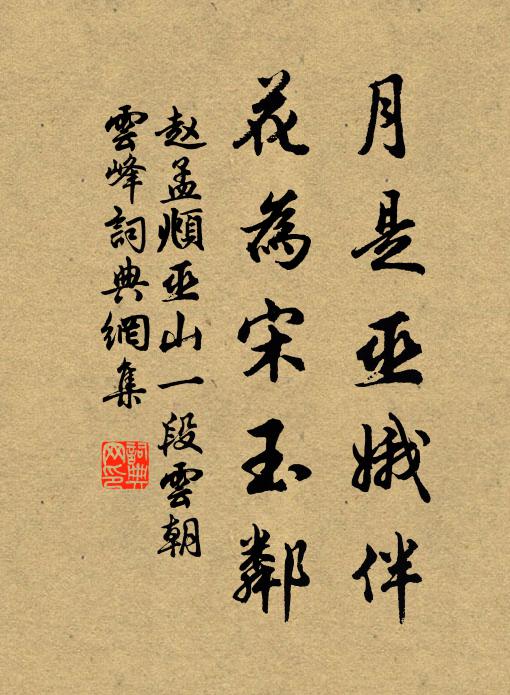 月是巫娥伴
花為宋玉鄰
赵孟頫巫山一段雲朝
雲峰詞典網集
詞典网印